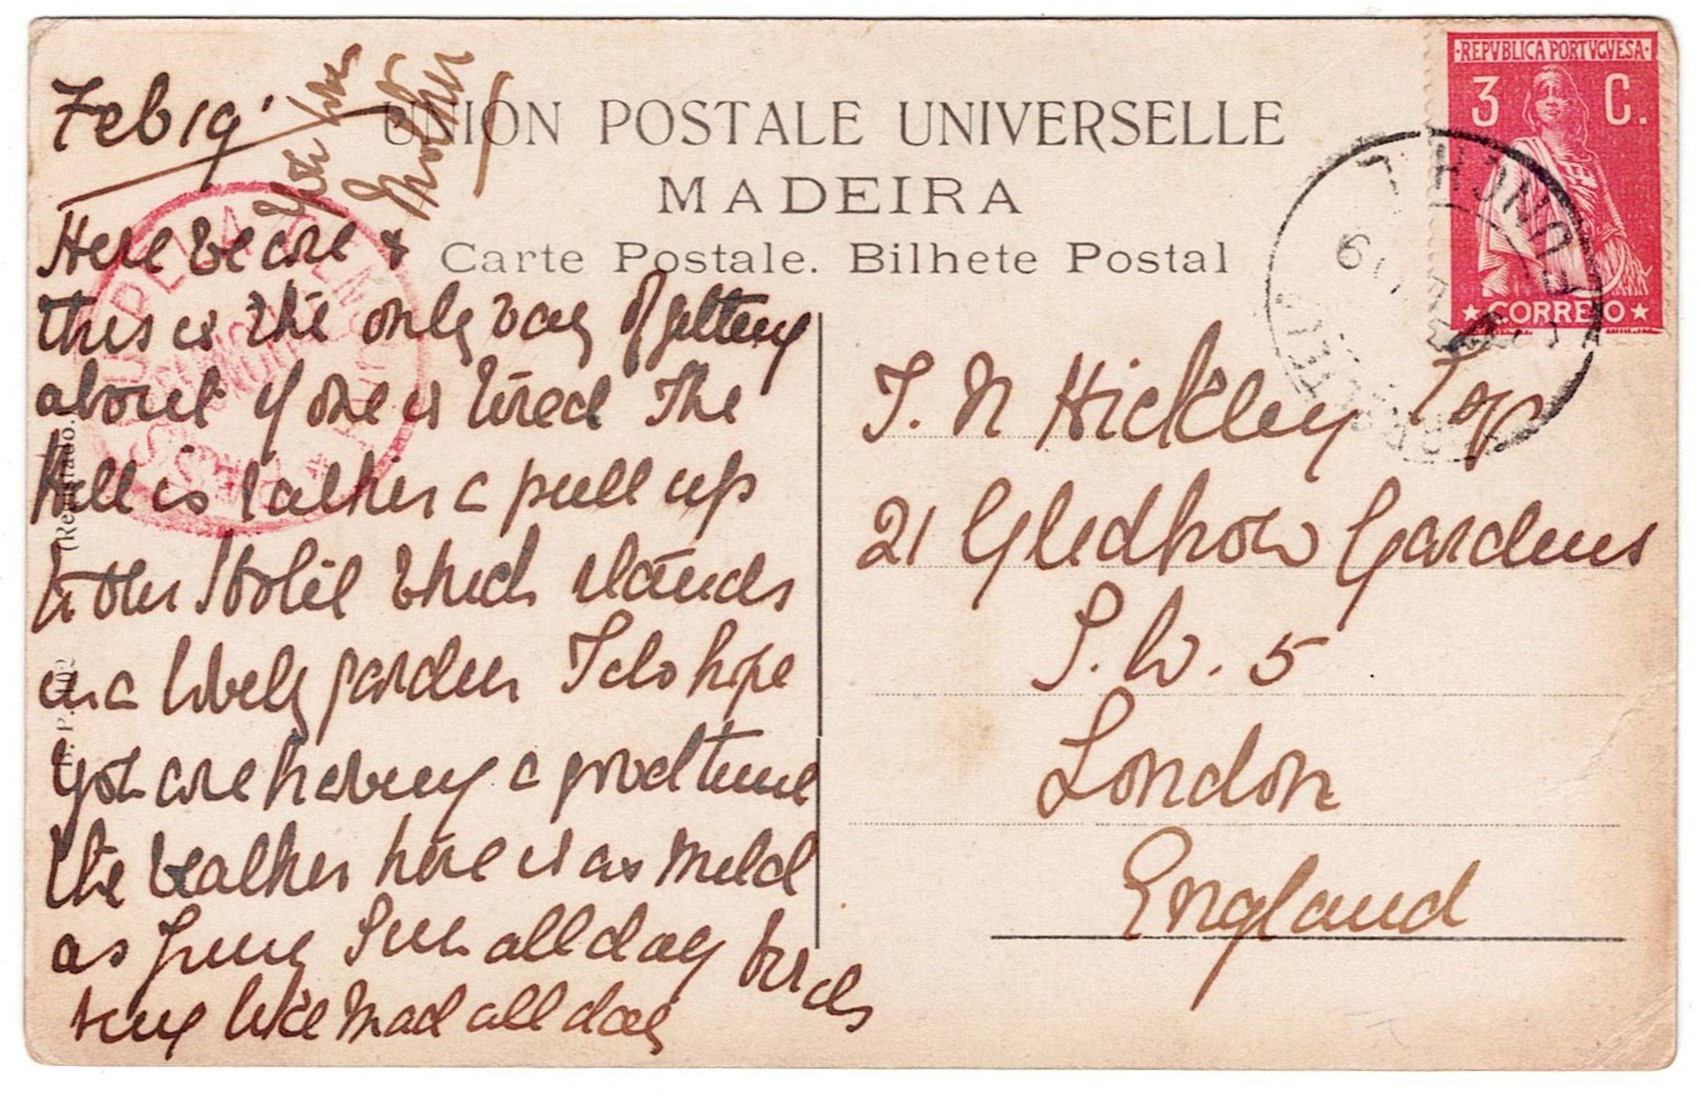 Feb 19
Yrs lov
Mother
Here we are &
this is the only way of getting
about if one is tired The
Hill is rather a pull up
to the Hotel which stands
in a lovely garden I do hope
you are having a good time
the weather here is as mild
as June Sun all day birds
sing like mad all day
UNION POSTALE UNIVERSELLE
MADEIRA
Carte Postale. Bilhete Postal
REPVBLICA PORTVGVESA
3 C.
CORREIO
FUNCHAL
(Registado.)
T. N Hickley Esq
21 Gledhow Gardens
S. W. 5
London
England